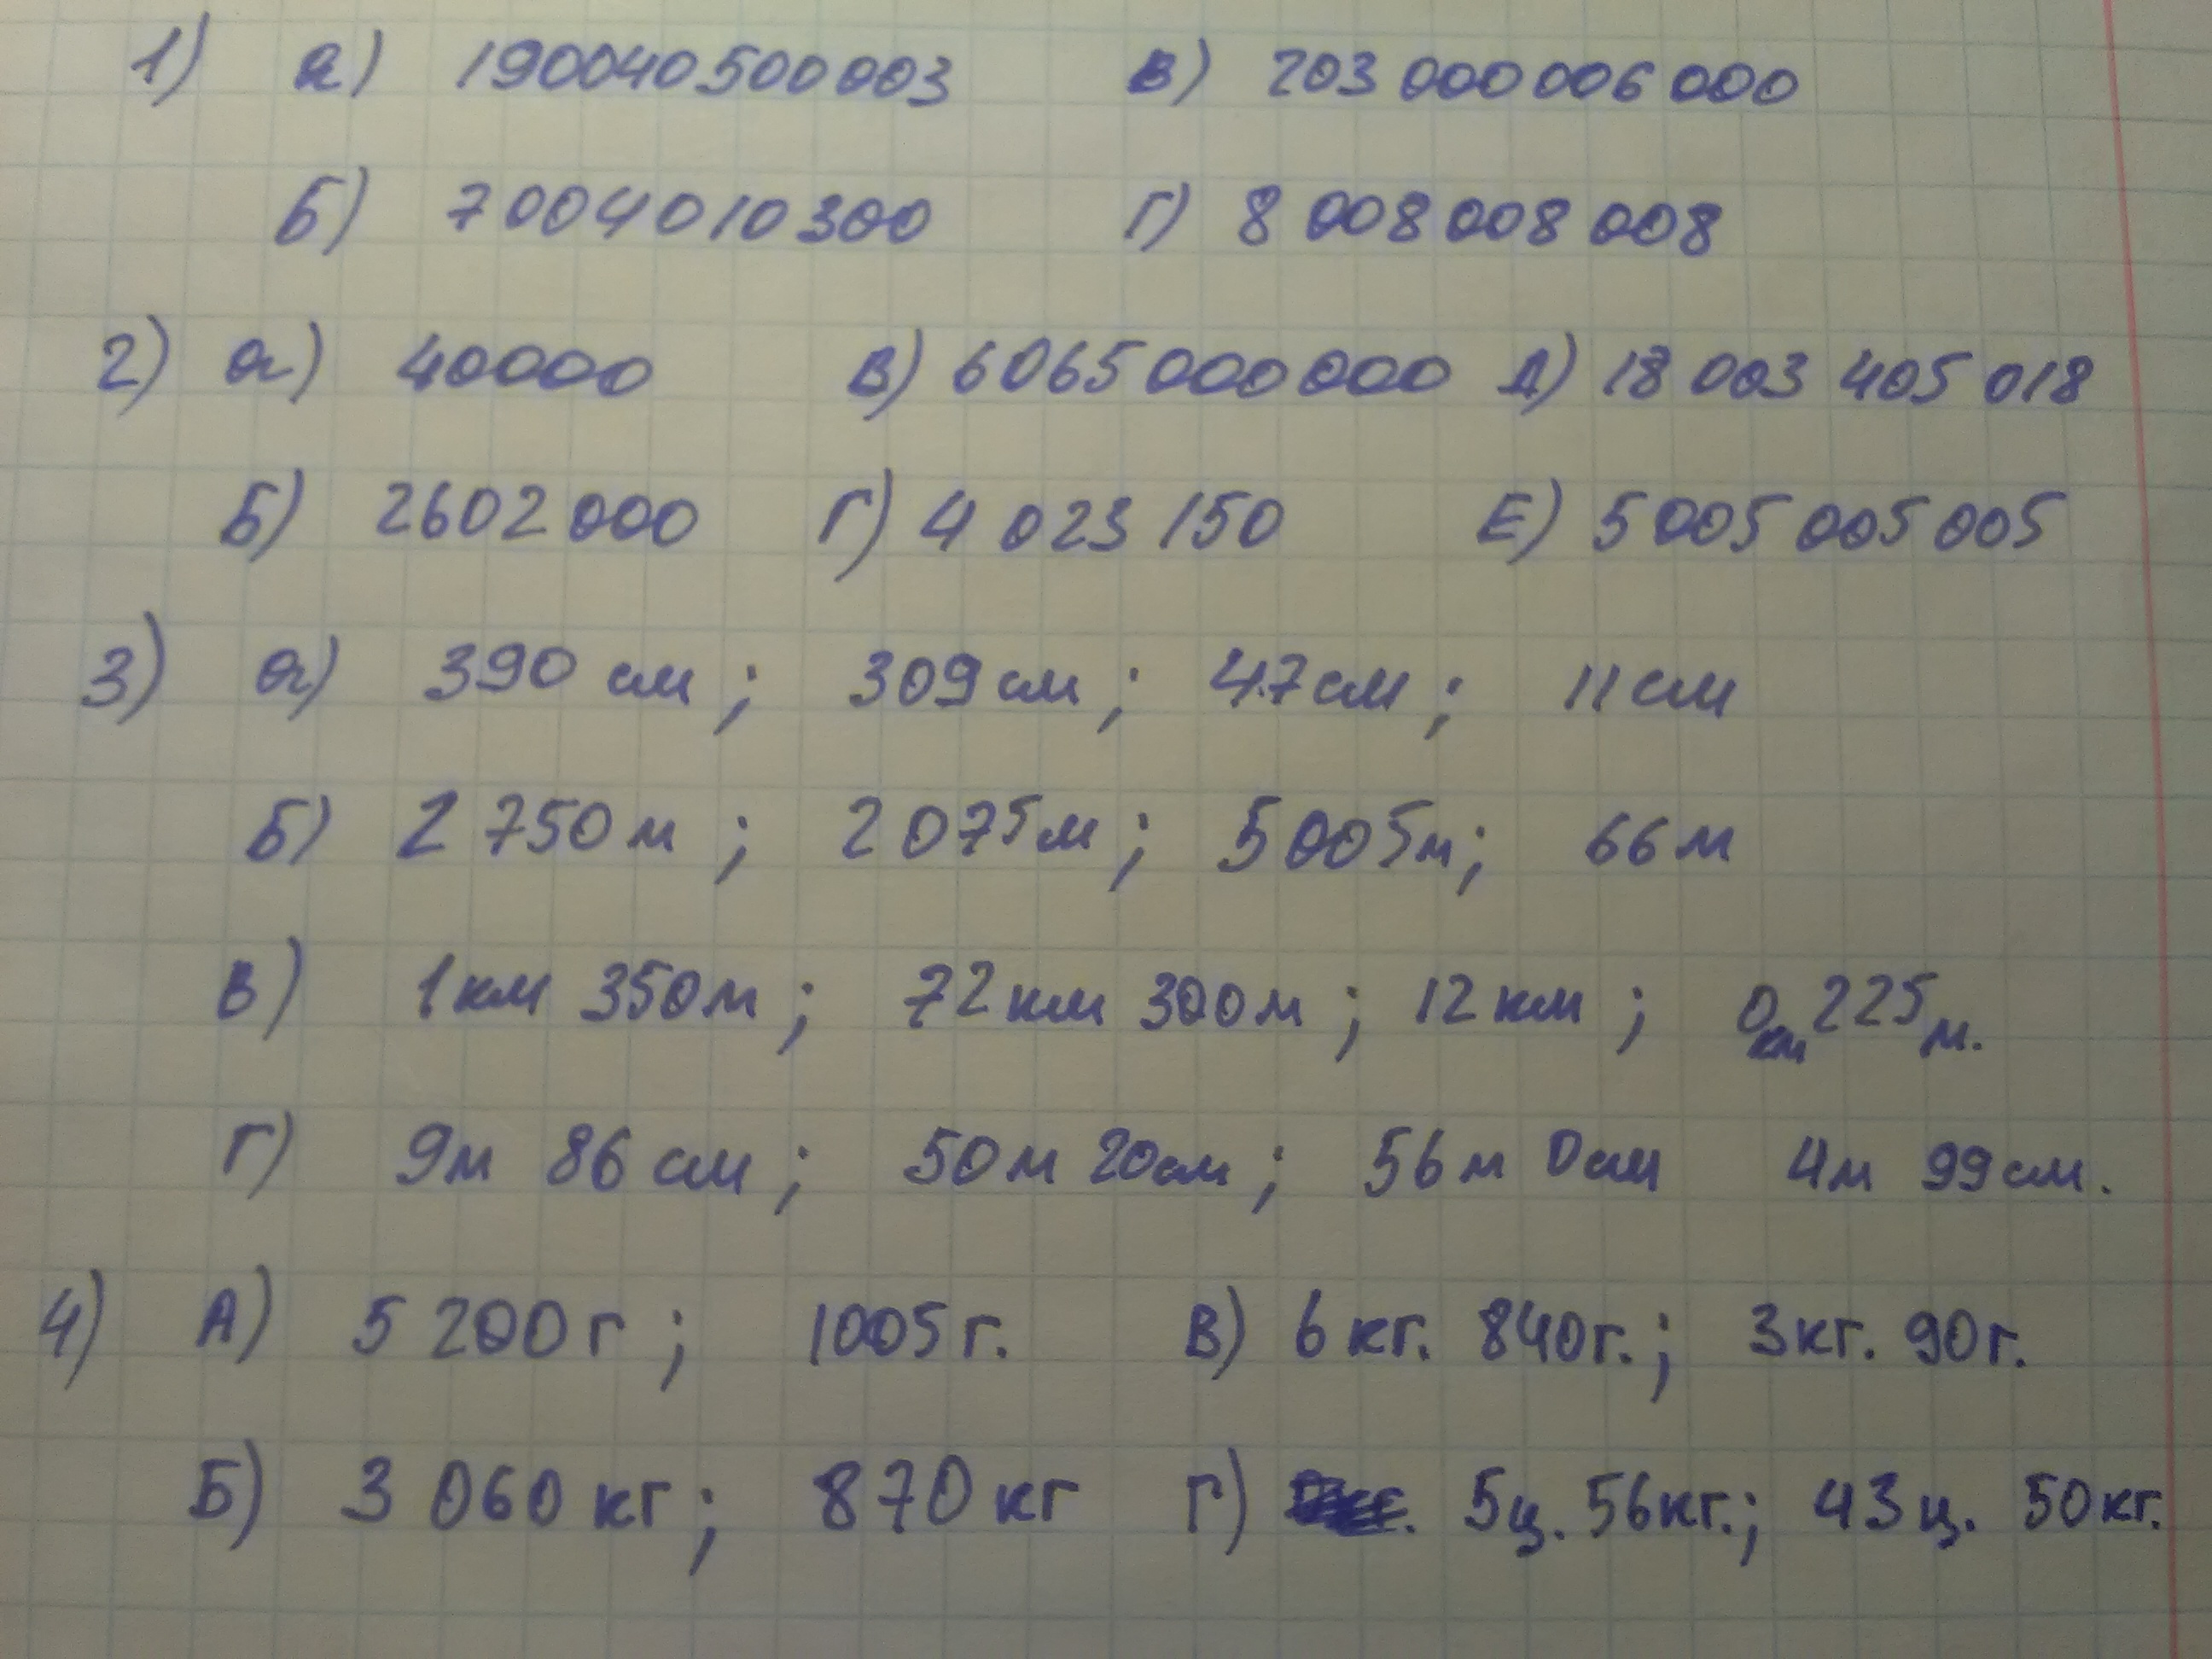 1) а) 190040500003 В) 203 000 006 000
Б) 7004010300 Г) 8 008 008 008
2) а) 40000 В) 6065 000 000 Д) 18 003 405 018
Б) 2602 000 Г) 4 023 150 Е) 5005 005 005
3) а) 390 см ; 309 см ; 47 см ; 11 см
Б) 2 750 м ; 2 075 м ; 5 005 м ; 66 м
В) 1 км 350 м ; 72 км 300 м ; 12 км ; 0 км 225 м.
Г) 9 м 86 см ; 50 м 20 см ; 56 м 0 см 4 м 99 см.
4) А) 5 200 г ; 1005 г. В) 6 кг. 840 г. ; 3 кг. 90 г.
Б) 3 060 кг ; 870 кг Г) 5 ц. 56 кг. ; 43 ц. 50 кг.